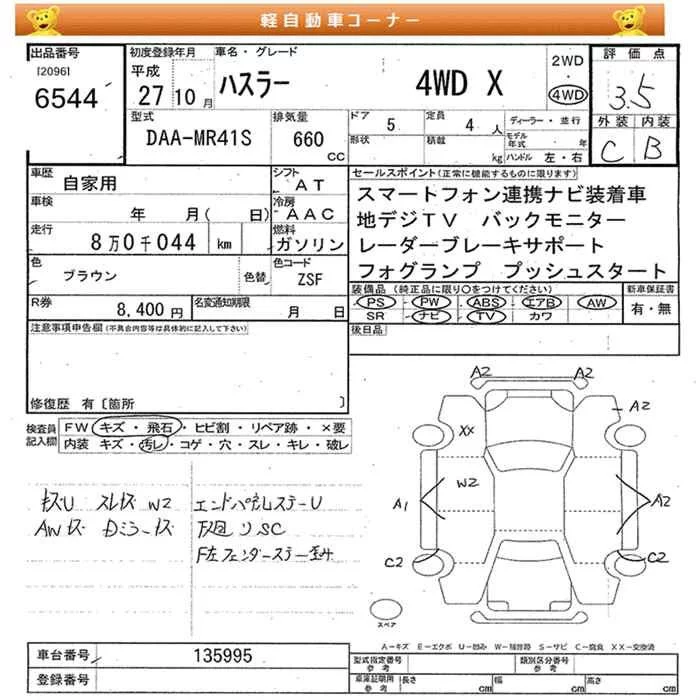 軽自動車コーナー
出品番号
[2096]
6544
初度登録年月
平成
27 10 月
車名・グレード
ハスラー 4WD X
2WD
・
4WD
評価点
3.5
外装 内装
C B
型式
DAA-MR41S
排気量
660
CC
ドア 5
定員 4 人
形状
積載 kg
ディーラー・並行
モデル年式 年
ハンドル 左・右
車歴
自家用
シフト
AT
車検
年 月( 日)
冷房
AAC
走行
8万0千044 km
燃料
ガソリン
色
ブラウン
色替
色コード
ZSF
R券
8,400 円
名変通知期限
月 日
セールスポイント(正常に機能するものに限ります)
スマートフォン連携ナビ装着車
地デジTV バックモニター
レーダーブレーキサポート
フォグランプ プッシュスタート
装備品(純正品に限り○をつけてください)
PS PW ABS エアB AW
SR ナビ TV カワ
新車保証書
有・無
後日品
注意事項申告欄(不具合内容等は具体的に記入して下さい)
修復歴 有〔箇所 〕
検査員記入欄
FW キズ・飛石・ヒビ割・リペア跡・×要
内装 キズ・汚レ・コゲ・穴・スレ・キレ・破レ
キズU スレキズ W2
AWキズ Dミラーキズ
エンドパネルステーU
下廻りSC
F左フェンダーステー歪み
A2 A2
A2
XX
W2
A1
A2
C2
C2
スペア
A-キズ E-エクボ U-凹み W-補修跡 S-サビ C-腐食 XX-交換済
車台番号
135995
登録番号
型式指定番号
参考
類別区分番号
参考
車庫証明用
参考
長さ cm
幅 cm
高さ cm